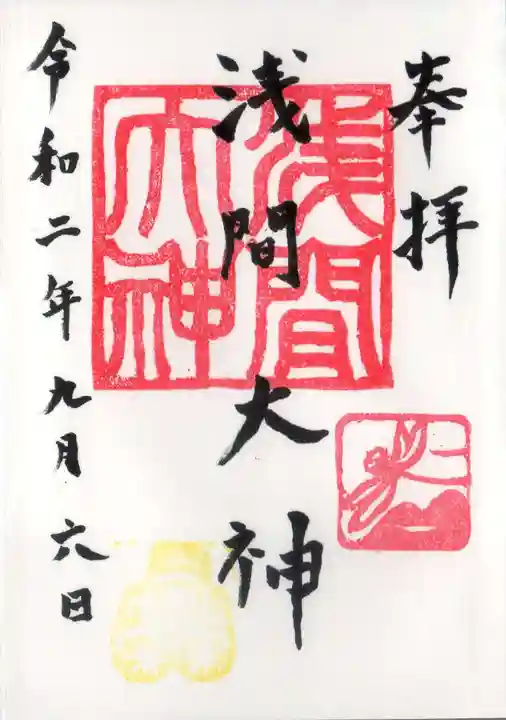 奉拝
浅間大神
浅間
大神
令和二年九月六日